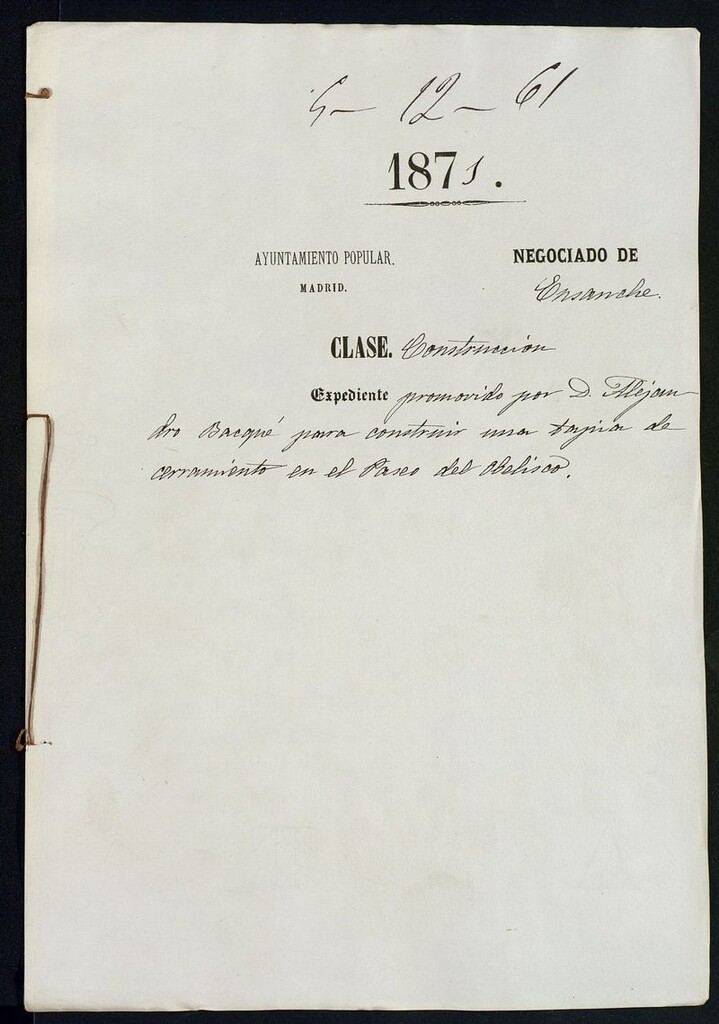 5- 12- 61
1871.
AYUNTAMIENTO POPULAR.
MADRID.
NEGOCIADO DE
Ensanche.
CLASE. Construccion
Expediente promovido por D. Alejan
dro Bacqué para construir una tapia de
cerramiento en el Paseo del Obelisco.